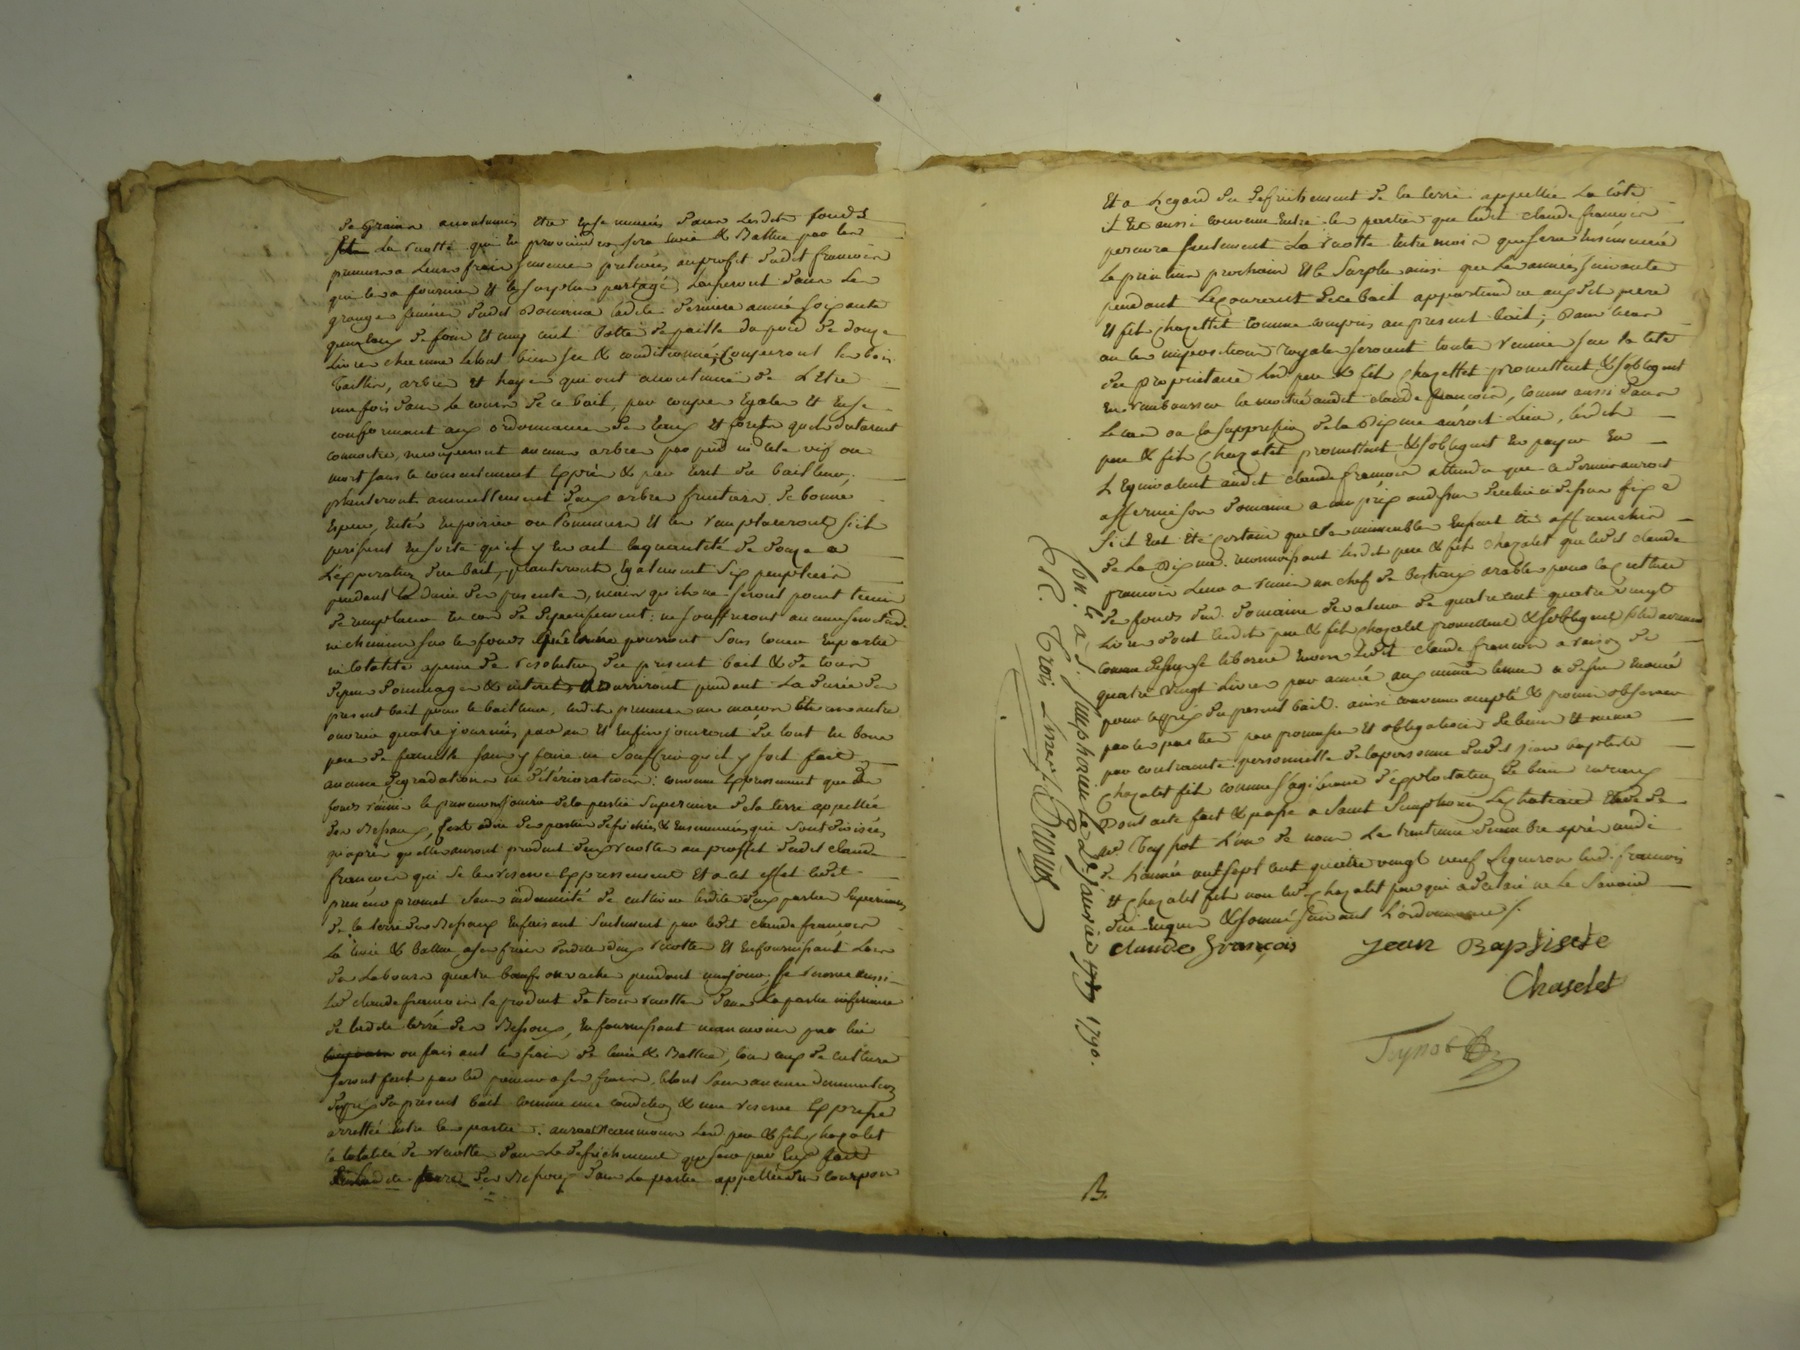 de Grains accoutumés etre Ensemencés dans lesdits fonds
la recolte qui en proviendra sera levée & Battue par les
preneurs a leurs frais semence prelevée au profit dudit françois
qui les a fournies et le surplus partagé, Laisseront dans les
granges fenieres dudit Domaine ladite derniere année soixante
quintaux de foin et cinq cent bottes de paille du poid de douze
Livres chacunne letout bien sec & conditionné; Couperont les bois
Taillis, arbres et hayes qui ont accoutumé de L'Etre
une fois dans le cours de ce bail, par coupes Egales et En se
conformant aux ordonnances des Eaux et forets
connoitre, ne couperont aucuns arbres par pied ni tete vif ou
mort sans le consentement Exprès & par Ecrit du bailleur;
planteront annuellement deux arbres fruitiers de bonne
Espece, Entés En poiriers ou Pommiers et les remplaceront s'ils
perissent En sorte qu'il y En ait la quantité de douze a
L'expiration du bail, planteront Egalement six peupliers
pendant la durée des presentes, mais qu'ils ne seront point tenus
de remplacer En cas de deperissement; ne souffriront aucunes servitudes
ni chemins sur les fonds pourront sous louer En partie
ni totalité a peine de resolution du present bail & de tous
depens dommages & interets nourriront pendant la durée du
present bail pour le bailleur, lesdits preneurs un maçon ou autre
ouvrier quatre journées par an et Enfin jouiront du tout En bons
peres de famille sans y faire ni souffrir qu'il y soit fait
aucunes degradations ni déteriorations: convenu Expressement que les
preneurs jouira de la partie superieure de la terre appellée
des Bessoux, c'est adire des parties defrichées & Ensemencées qui sont divisées
qu'après qu'elles auront produit deux recoltes au proffit dudit claude
françois qui se les reserve Expressement et a cet effet ledit
preneur promet sans indemnité de cultiver lesdites deux parties superieures
de la terre des Bessoux En faisant seulement par ledit claude françois
La levée & battue a ses frais desdites deux recoltes et En fournissant lors
des Labours quatre bœufs ou vaches pendant un jour; se reserve aussi
led. claude françois le produit de trois recoltes dans La partie inferieure
de ladite terre des Bessoux, En fournissant neanmoins par lui
ou faisant les frais de levée & Battue, tous ceux de culture
seront faits par led. preneur a ses frais, letout sans aucune diminution
du prix du present bail comme une condition & une reserve Expresse
arrettée Entre les parties; auront neanmoins lesd. pere & fils chazalet
la totalité de recoltes dans le defrichement que sera par Eux fait
terre des Bessoux dans la partie appellée
Et a L'egard du defrichement de la terre appellée La Côte
il Est aussi convenu Entre les parties que ledit claude françois
percevra seulement La recolte Entre mois que sera Ensemencée
le printems prochain et le surplus ainsi que les années suivantes
pendant Le courant de ce bail appartiendra auxdits pere
et fils chazallet comme compris au present bail; Dans le cas
ou les impositions royales seroient toutes reunies sur la tete
du proprietaire lesd. pere & fils chazallet promettent & s'obligent
En rembourser la moitié audit claude françois, comme aussi dans
Le cas ou la suppression de la Dixme auroit Lieu, lesdits
pere & fils chazalet promettent & s'obligent En payer En
L'Equivalent audit claude françois attendu que ce dernier auroit
affermé son Domaine a un prix audessus de celui cidessus fixé
s'il Eut été certain que les immeubles Eussent été affranchis
de La Dixme. reconnoissent lesdits pere & fils chazalet que ledit claude
françois Leur a remis un chef de bestiaux arables pour la culture
des fonds dud. Domaine de valeur de quatre cent quatre vingt
Livres dont lesdits pere & fils chazalet promettent & s'obligent solidairement
comme dessus se liberer Envers ledit claude françois a raison de
quatre vingt Livres par année aux memes termes cidessus Enoncé
pour le prix du present bail. ainsi convenu accepté & promis observer
par les parties par promesse et obligations de biens et meme
par contrainte personnelle de la personne dudit jean baptiste
chazalet fils comme s'agissant d'exploitation de biens ruraux
Dont acte fait & passé a Saint Simphorien Le chateau Etude de
me. Teypot L'un de nous Le trentieme decembre après midi
de L'année mil sept cent quatre vingt neuf Signeront lesd. françois
et chazalet fils non led. chazalet pere qui a declaré ne le savoir
de ce Enquis & sommé suivant L'ordonnance /.
claude françois Jean Baptiste
Chaselet
Teypot
Con. le a St. Simphorien le Le 2e. janvier 1790.
R. Trois Livres
B.